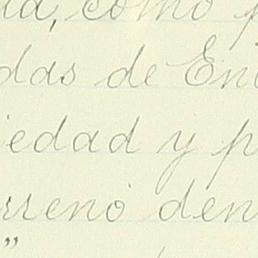 ia, como p
das de En
iedad y p
rreno den
"